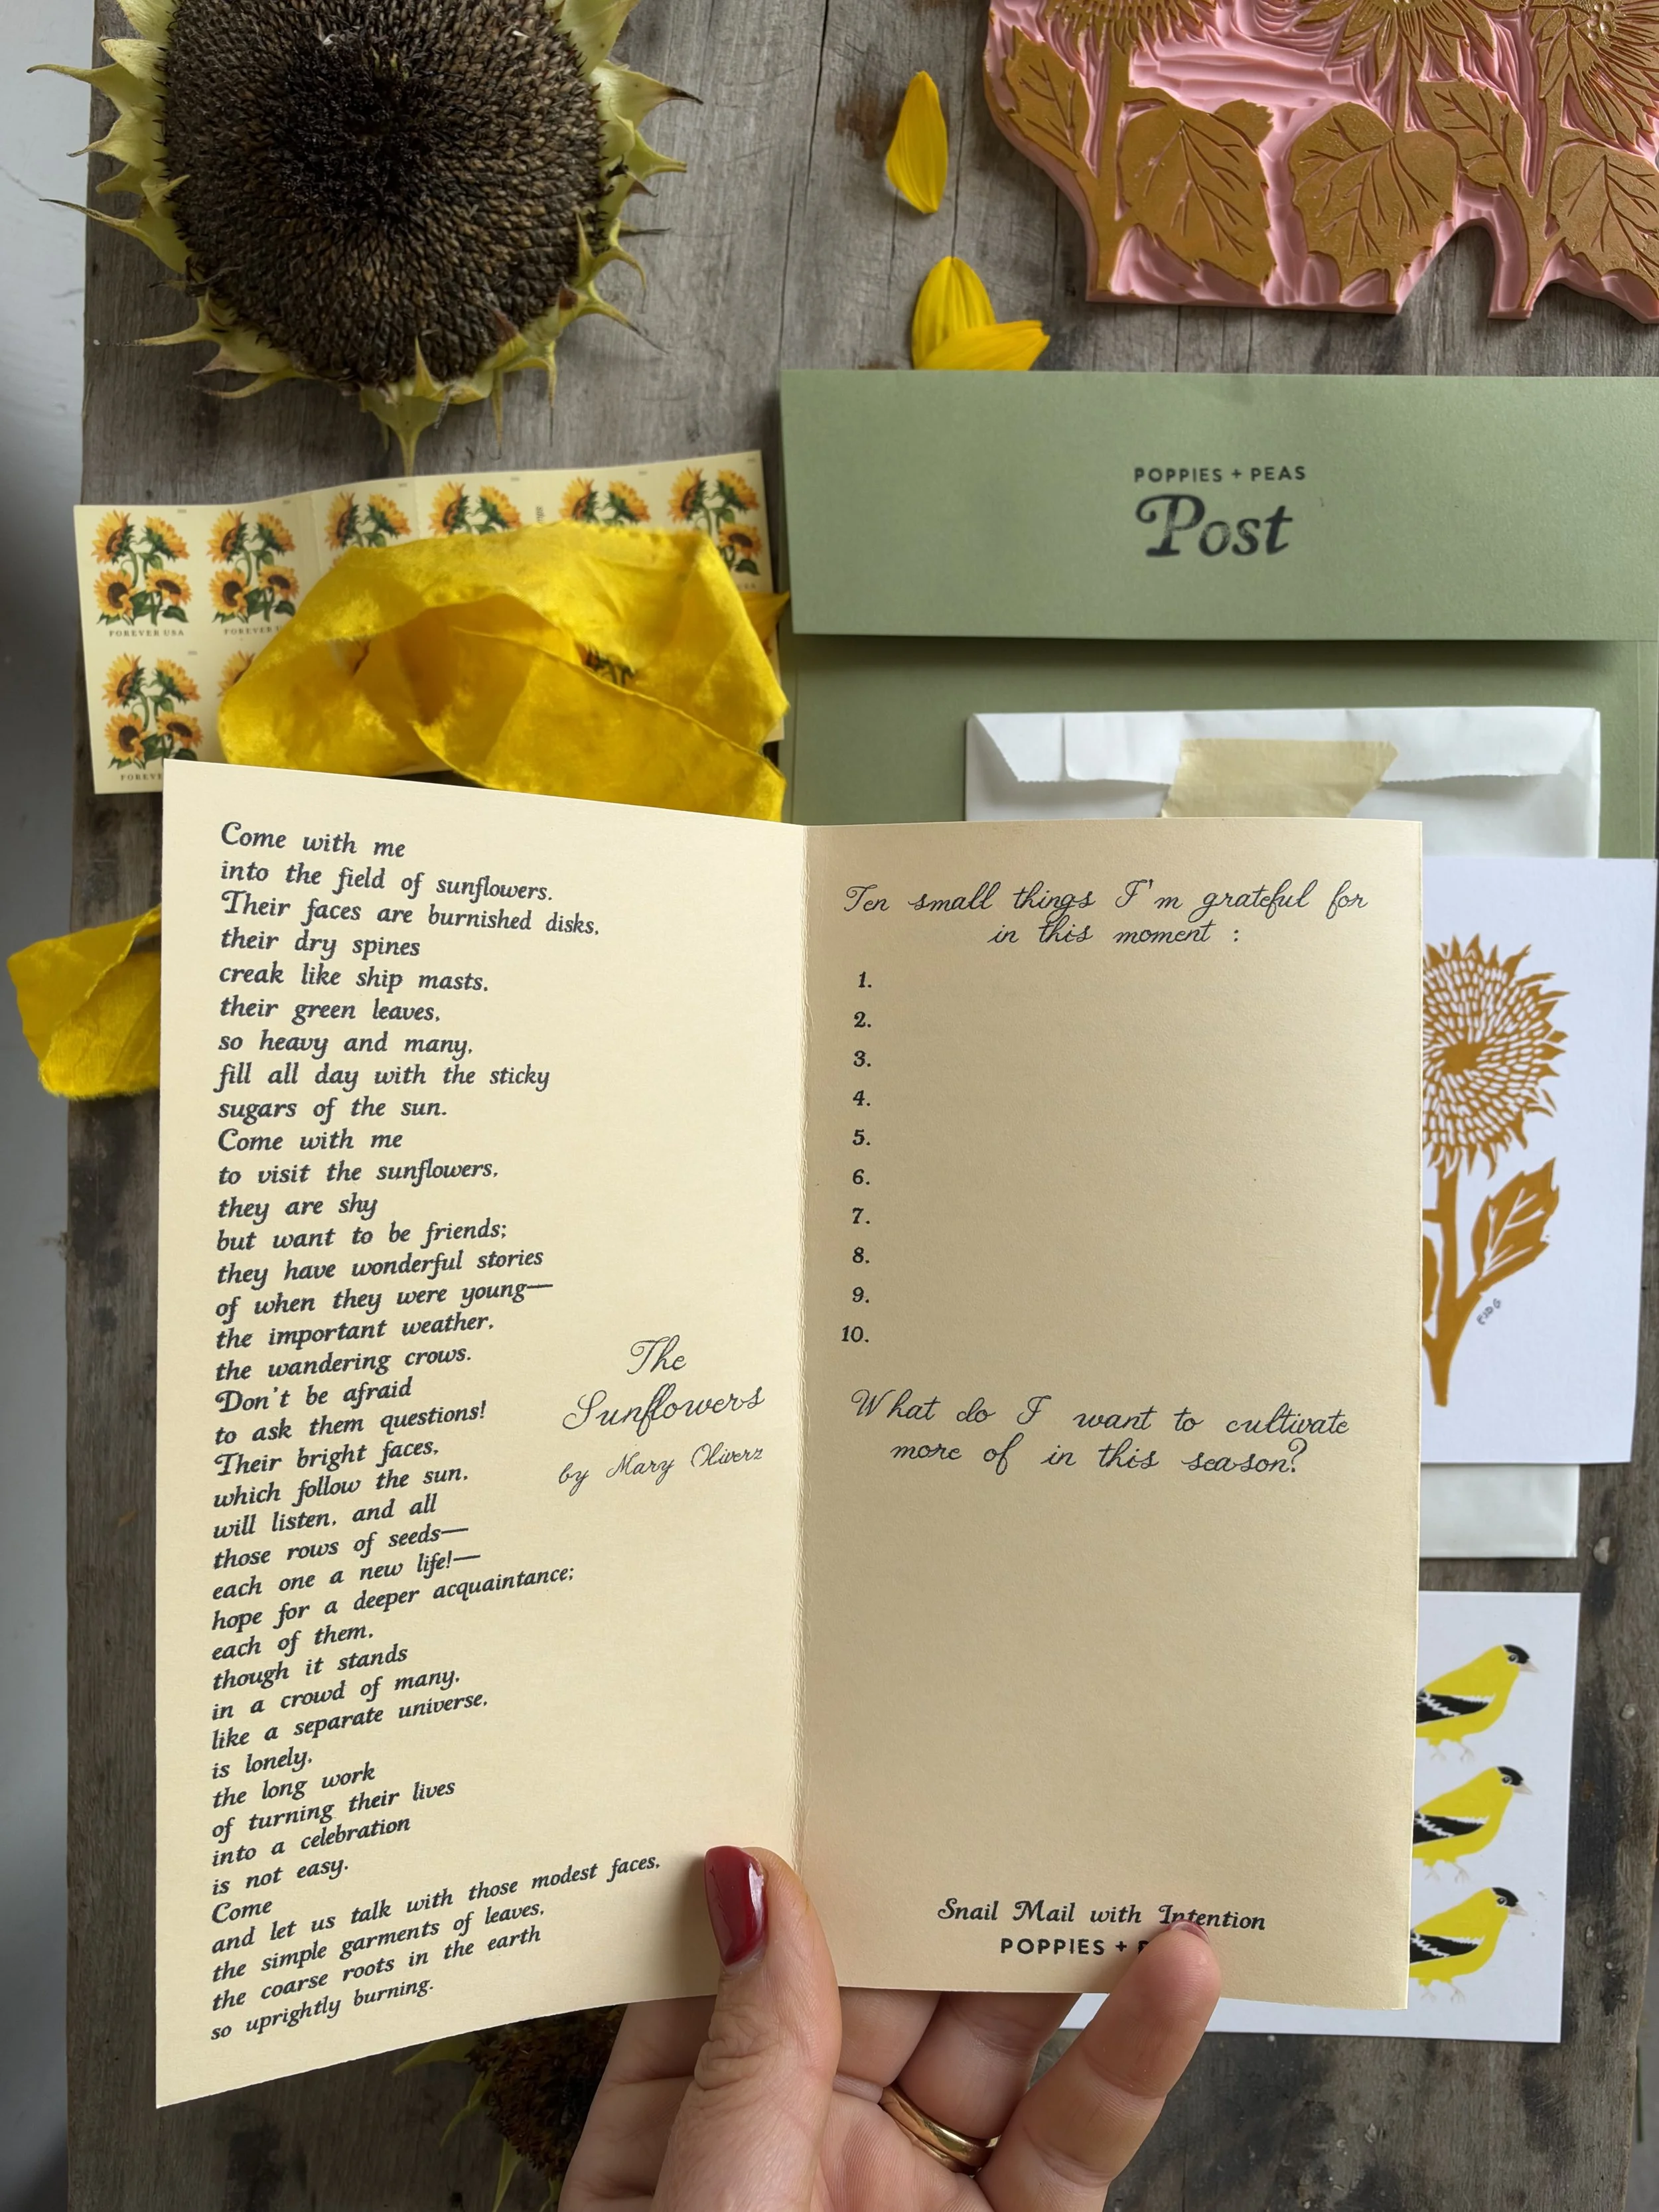 POPPIES + PEAS
Post
FOREVER USA
FOREVER
FOREVER
Come with me
into the field of sunflowers.
Their faces are burnished disks,
their dry spines
creak like ship masts,
their green leaves,
so heavy and many,
fill all day with the sticky
sugars of the sun.
Come with me
to visit the sunflowers,
they are shy
but want to be friends;
they have wonderful stories
of when they were young—
the important weather,
the wandering crows.
Don't be afraid
to ask them questions!
Their bright faces,
which follow the sun,
will listen, and all
those rows of seeds—
each one a new life!—
hope for a deeper acquaintance;
each of them,
though it stands
in a crowd of many,
like a separate universe,
is lonely,
the long work
of turning their lives
into a celebration
is not easy.
Come
and let us talk with those modest faces,
the simple garments of leaves,
the coarse roots in the earth
so uprightly burning.
The
Sunflowers
by Mary Oliver
Ten small things I'm grateful for
in this moment :
1.
2.
3.
4.
5.
6.
7.
8.
9.
10.
What do I want to cultivate
more of in this season?
Snail Mail with Intention
POPPIES +